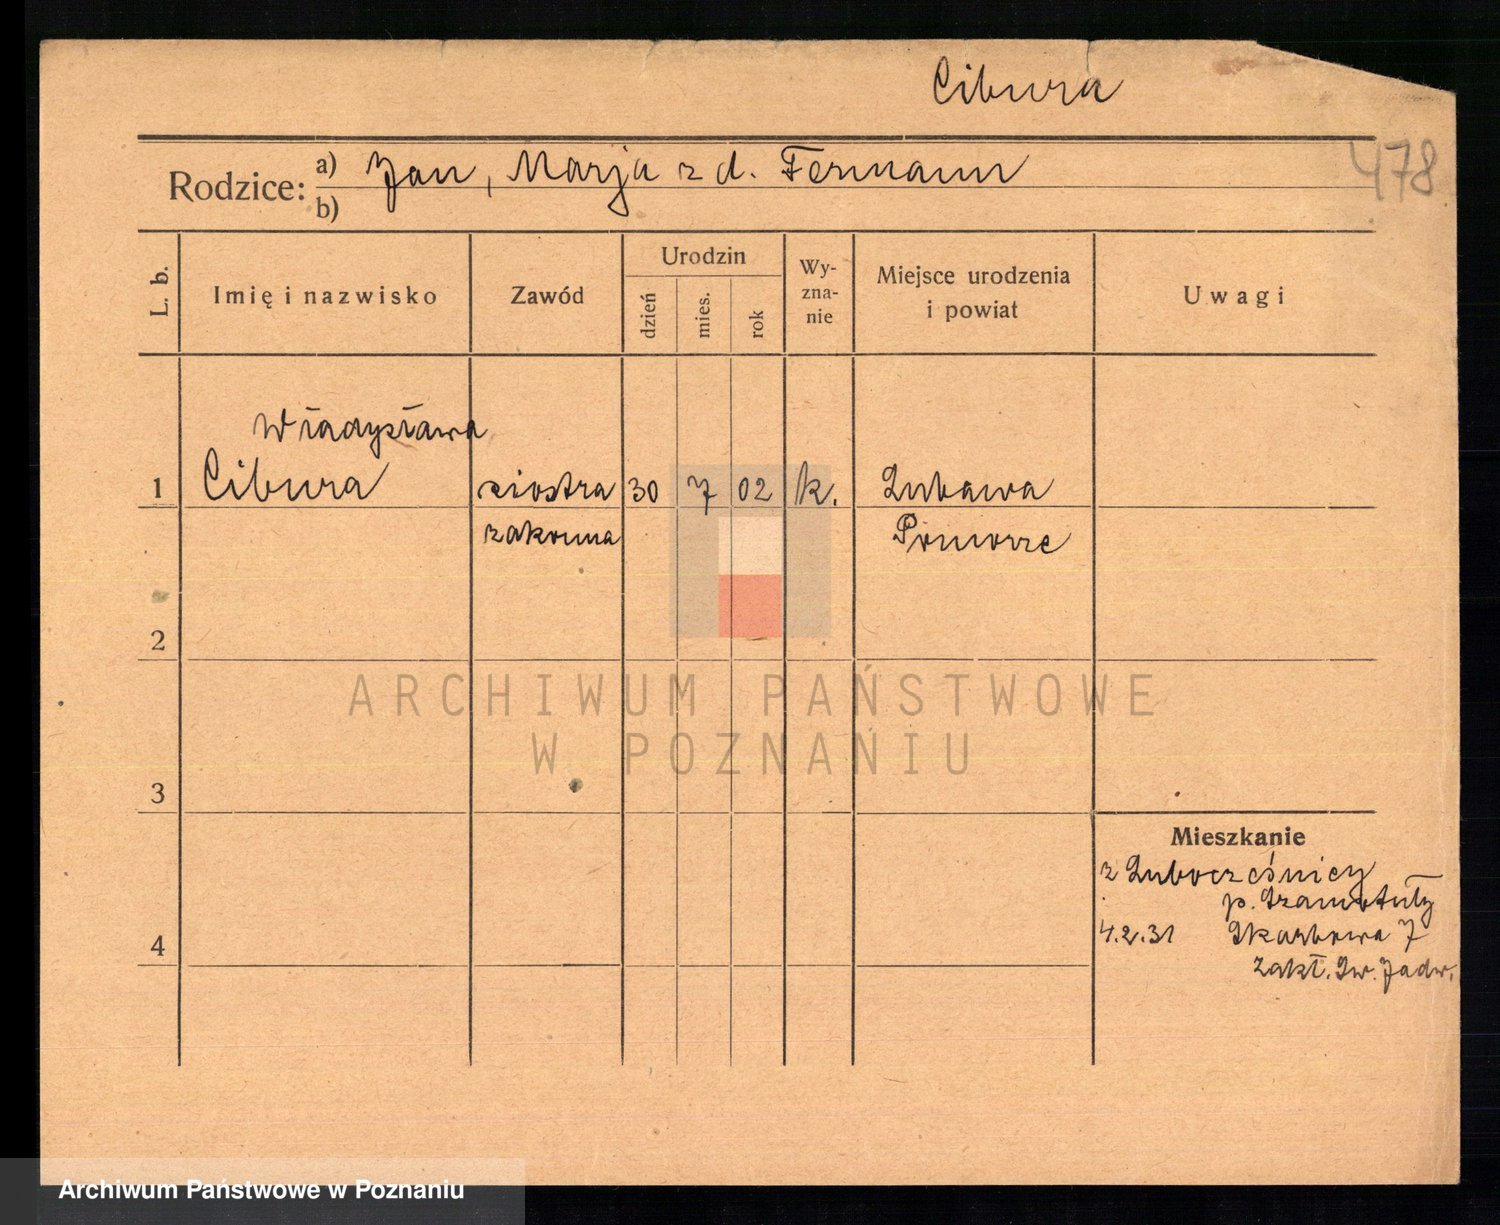 Cibura
478
Rodzice: a) Jan, Marja z d. Fermann
b)
L. b.
Imię i nazwisko
Zawód
Urodzin
dzień
mies.
rok
Wy-
zna-
nie
Miejsce urodzenia
i powiat
Uwagi
Władysława
1 Cibura siostra 30 7 02 k. Lubawa
zakonna Pomorze
2
ARCHIWUM PAŃSTWOWE
W POZNANIU
3
Mieszkanie
z
p. Szamotuły
4.2.31 Skarbowa 7
4
Zakł. Św. Jadw.
Archiwum Państwowe w Poznaniu